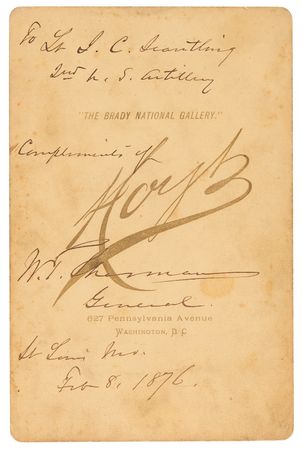 To Lt J. C. Scantling
2nd U. S. Artillery
"THE BRADY NATIONAL GALLERY."
Compliments of
W. T. Sherman
General.
627 Pennsylvania Avenue
WASHINGTON, D.C.
St Louis Mo.
Feb 8, 1876.